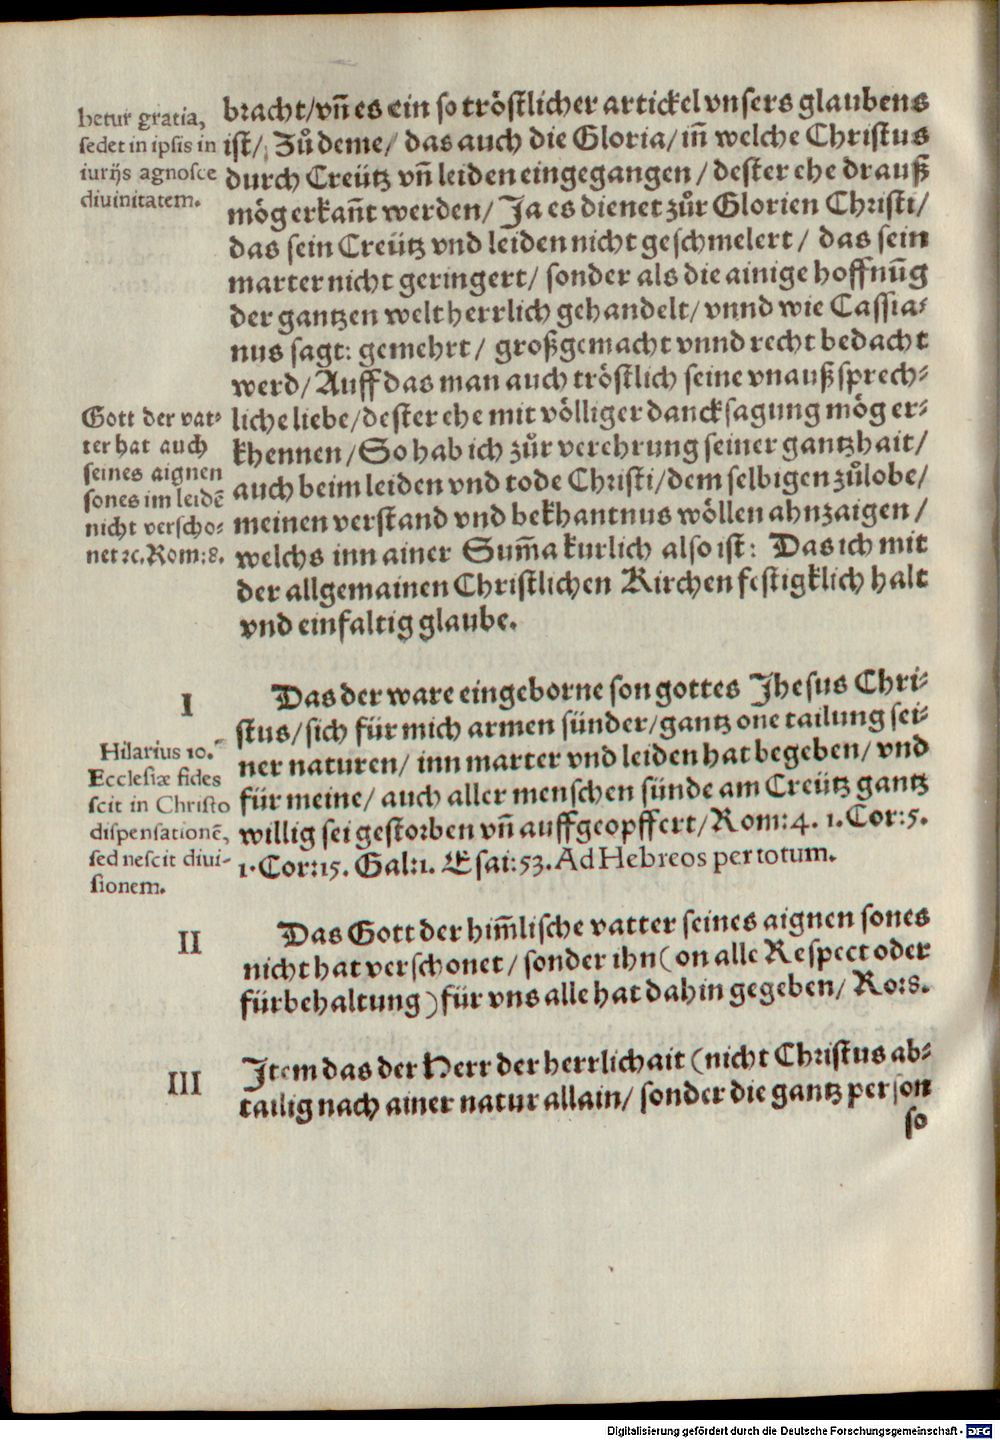 bracht/vñ es ein so tröstlicher artickel vnsers glaubens
ist/ Zů deme/ das auch die Gloria/ iñ welche Christus
durch Creütz vñ leiden eingegangen/ dester ehe drauß
mög erkañt werden/ Ja es dienet zůr Glorien Christi/
das sein Creütz vnd leiden nicht geschmelert/ das sein
marter nicht geringert/ sonder als die ainige hoffnūg
der gantzen welt herrlich gehandelt/ vnnd wie Cassia-
nus sagt: gemehrt/ großgemacht vnnd recht bedacht
werd/ Auff das man auch tröstlich seine vnaußsprech-
liche liebe/ dester ehe mit völliger dancksagung mög er-
khennen/ So hab ich zůr verehrung seiner gantzhait/
auch beim leiden vnd tode Christi/ dem selbigen zůlobe/
meinen verstand vnd bekhantnus wöllen ahnzaigen/
welchs inn ainer Sum̃a kurlich also ist: Das ich mit
der allgemainen Christlichen Kirchen festigklich halt
vnd einfaltig glaube.
betur gratia,
sedet in ipsis in
iurijs agnosce
diuinitatem.
Gott der vat-
ter hat auch
seines aignen
sones im leidē
nicht verscho-
net ꝛc. Rom: 8.
I
Das der ware eingeborne son gottes Jhesus Chri-
stus/ sich für mich armen sünder/ gantz one tailung sei-
ner naturen/ inn marter vnd leiden hat begeben/ vnd
für meine/ auch aller menschen sünde am Creütz gantz
willig sei gestorben vñ auffgeopffert/ Rom: 4. 1. Cor: 5.
1. Cor: 15. Gal: 1. Esai: 53. Ad Hebreos per totum.
Hilarius 10.
Ecclesiæ fides
scit in Christo
dispensationē,
sed nescit diui-
sionem.
II
Das Gott der him̃lische vatter seines aignen sones
nicht hat verschonet/ sonder ihn (on alle Respect oder
fürbehaltung) für vns alle hat dahin gegeben/ Ro: 8.
III
Jtem das der Herr der herrlichait (nicht Christus ab-
tailig nach ainer natur allain/ sonder die gantz person
so
Digitalisierung gefördert durch die Deutsche Forschungsgemeinschaft - DFG